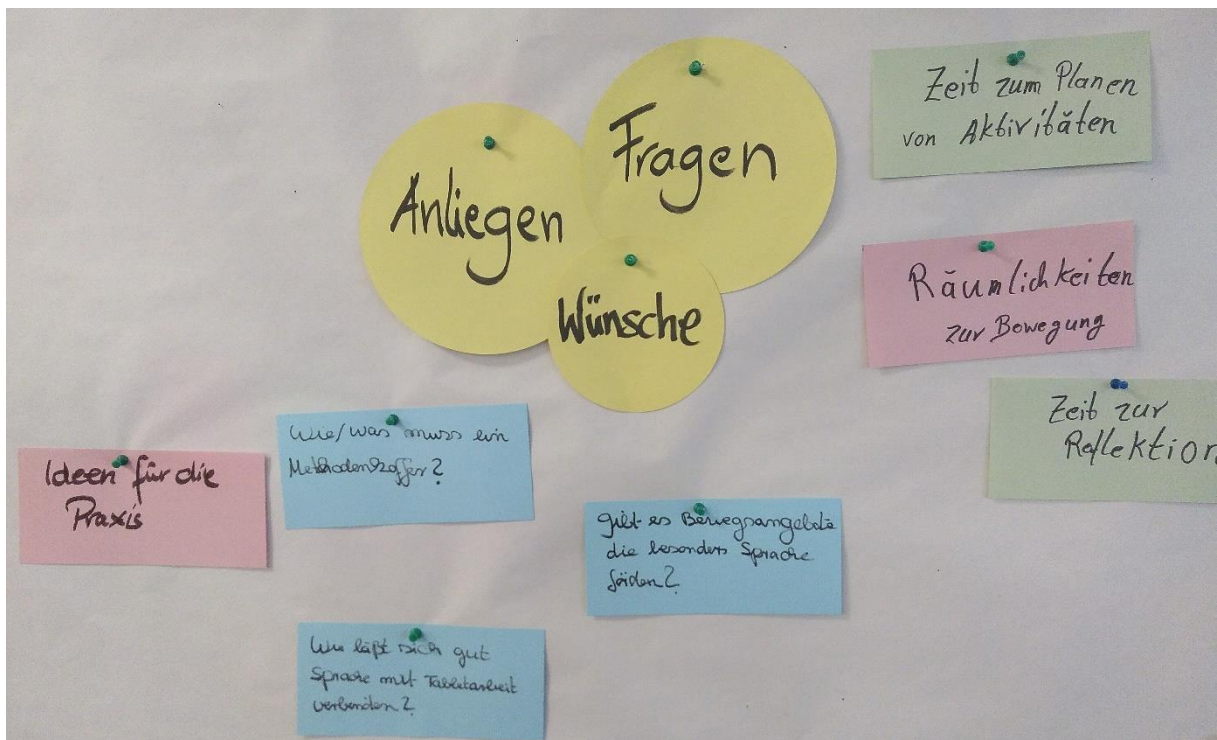 Anliegen
Fragen
Wünsche
Zeit zum Planen
von Aktivitäten
Räumlichkeiten
zur Bewegung
Zeit zur
Reflektion
Ideen für die
Praxis
Wie/was muss ein
Methodenkoffer?
gibt es Bewegsangebote
die besonders Sprache
fördern?
Wie läßt sich gut
Sprache mit Tabletarbeit
verbinden?